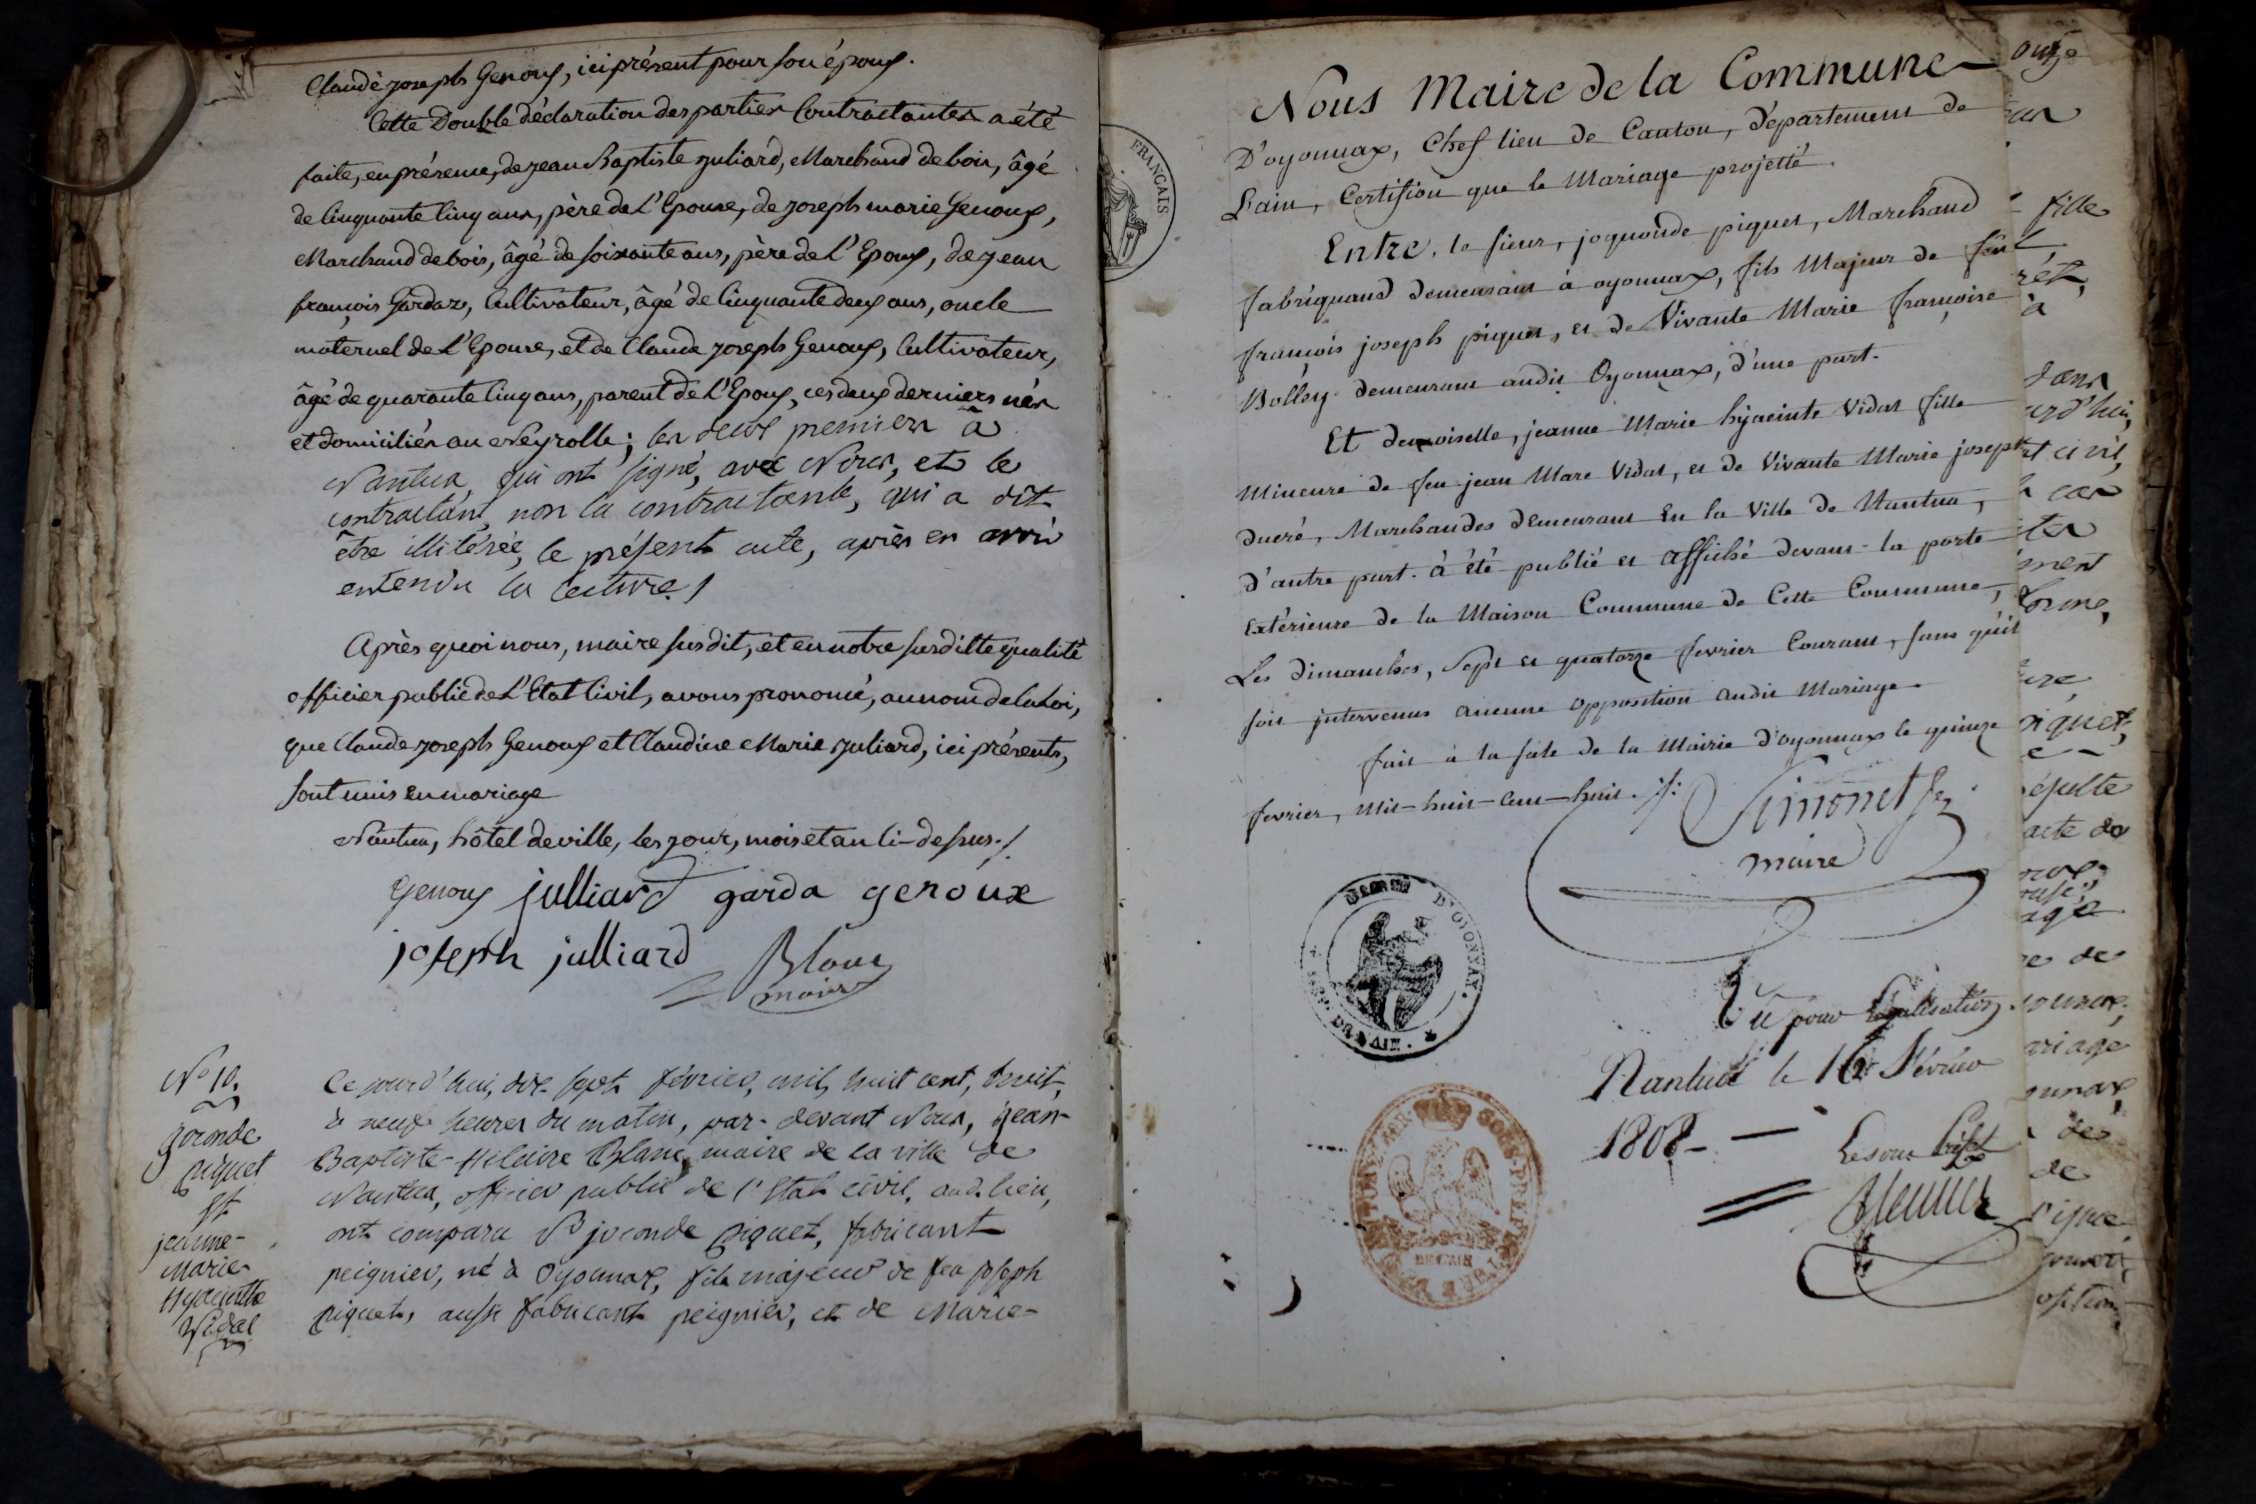 Claude joseph Genoux, ici présent pour son époux.
Cette Double déclaration des parties Contractantes a été
faite, en présence, de jean Baptiste juliard, Marchand de bois, âgé
de Cinquante Cinq ans, père de l'Epouse, de joseph marie Genoux,
Marchand de bois, âgé de soixante ans, père de l'Epoux, de jean
françois Gardaz, Cultivateur, âgé de Cinquante deux ans, oncle
maternel de l'Epouse, et de Claude joseph Genoux, Cultivateur,
âgé de quarante Cinq ans, parent de l'Epoux, ces deux derniers nés
et domiciliés au Neyrolle; les deux premiers à
Nantua, qui ont signé, avec Nous, et le
contractant, non la contractante, qui a dit
être illitérée, le présent acte, après en avoir
entendu la lecture./
Après quoi nous, maire susdit, et en notre susditte qualité
officier public de l'Etat Civil, avons prononcé, au nom de la Loi,
que Claude joseph Genoux et Claudine Marie juliard, ici présents,
sont unis en mariage
Nantua, hôtel de ville, les jour, mois et an ci-dessus./.
Genoux julliard garda genoux
joseph julliard Blanc
maire
N° 10.
joconde
piquet
et
jeanne-
Marie-
Hyacinthe
Vidal
Ce jourd'hui, dix-sept février, mil huit cent, huit,
à neuf heures du matin, par-devant Nous, jean-
Baptiste-Hilaire Blanc, maire de la ville de
Nantua, officier public de l'Etat civil, aud. lieu,
ont comparu Sr joconde piquet, fabricant
peignier, né à Oyonnax, fils majeur de feu joseph
piquet, aussi fabricant peignier, et de Marie-
FRANCAIS
Nous Maire de la Commune
D'oyonnax, Chef lieu de Canton, département de
L'ain, Certifions que le Mariage projetté.
Entre, le sieur, joquonde piquet, Marchand
fabriquand demeurant à oyonnax, fils Majeur de feu
françois joseph piquet, et de Vivante Marie françoise
Bolley demeurant audit Oyonnax, d'une part.
Et demoiselle, jeanne Marie hyacinte Vidat fille
Mineure de feu jean Marc Vidat, et de Vivante Marie joseph
ducré, Marchandes demeurant En la Ville de Nantua,
d'autre part. à été publié et affiché devant la porte
Extérieure de la Maison Commune de Cette Commune,
Les dimanches, Sept et quatorze fevrier Courant, sans qu'il
soit intervenus aucune opposition audit Mariage.
fait à la sale de la Mairie d'oyonnax le quinze
fevrier, Mil-huit-cent-huit.
Simonet
maire
MAIRIE D'OYONNAX.
DÉP. DE L'AIN
Vu pour Légalisation
Nantua le 16 février
1808
Le sous préfet
SOUS-PREFET
DE L'AIN
onze
fille
à
dans
piquet,
acte de
de
mariage
de